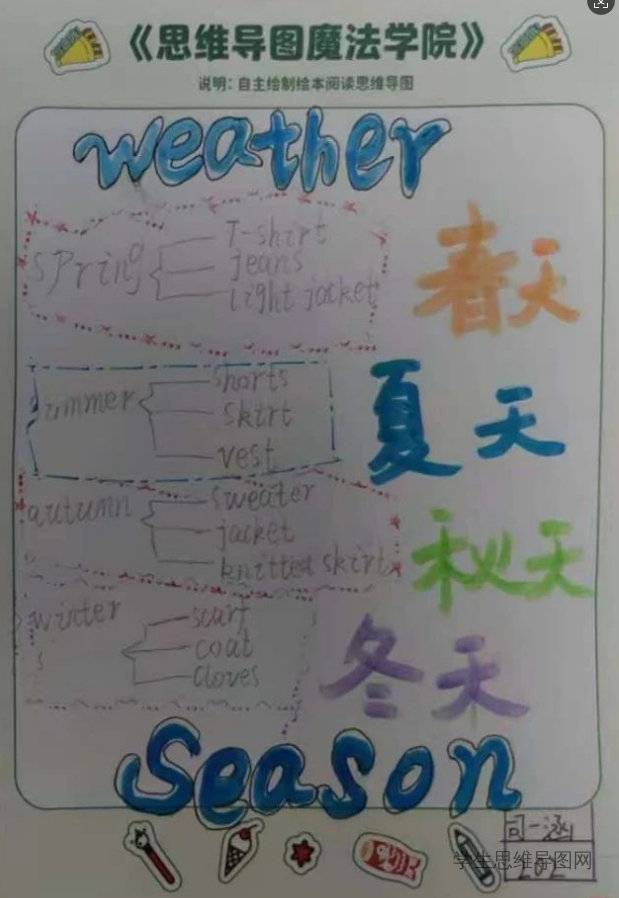 《思维导图魔法学院》
说明：自主绘制绘本阅读思维导图
weather
T-shirt
spring
jeans
light jacket
春天
shorts
summer
skirt
vest
夏天
sweater
autumn
jacket
knitted skirt
秋天
scarf
winter
coat
Gloves
冬天
Season
司一涵
学生思维导图网
202